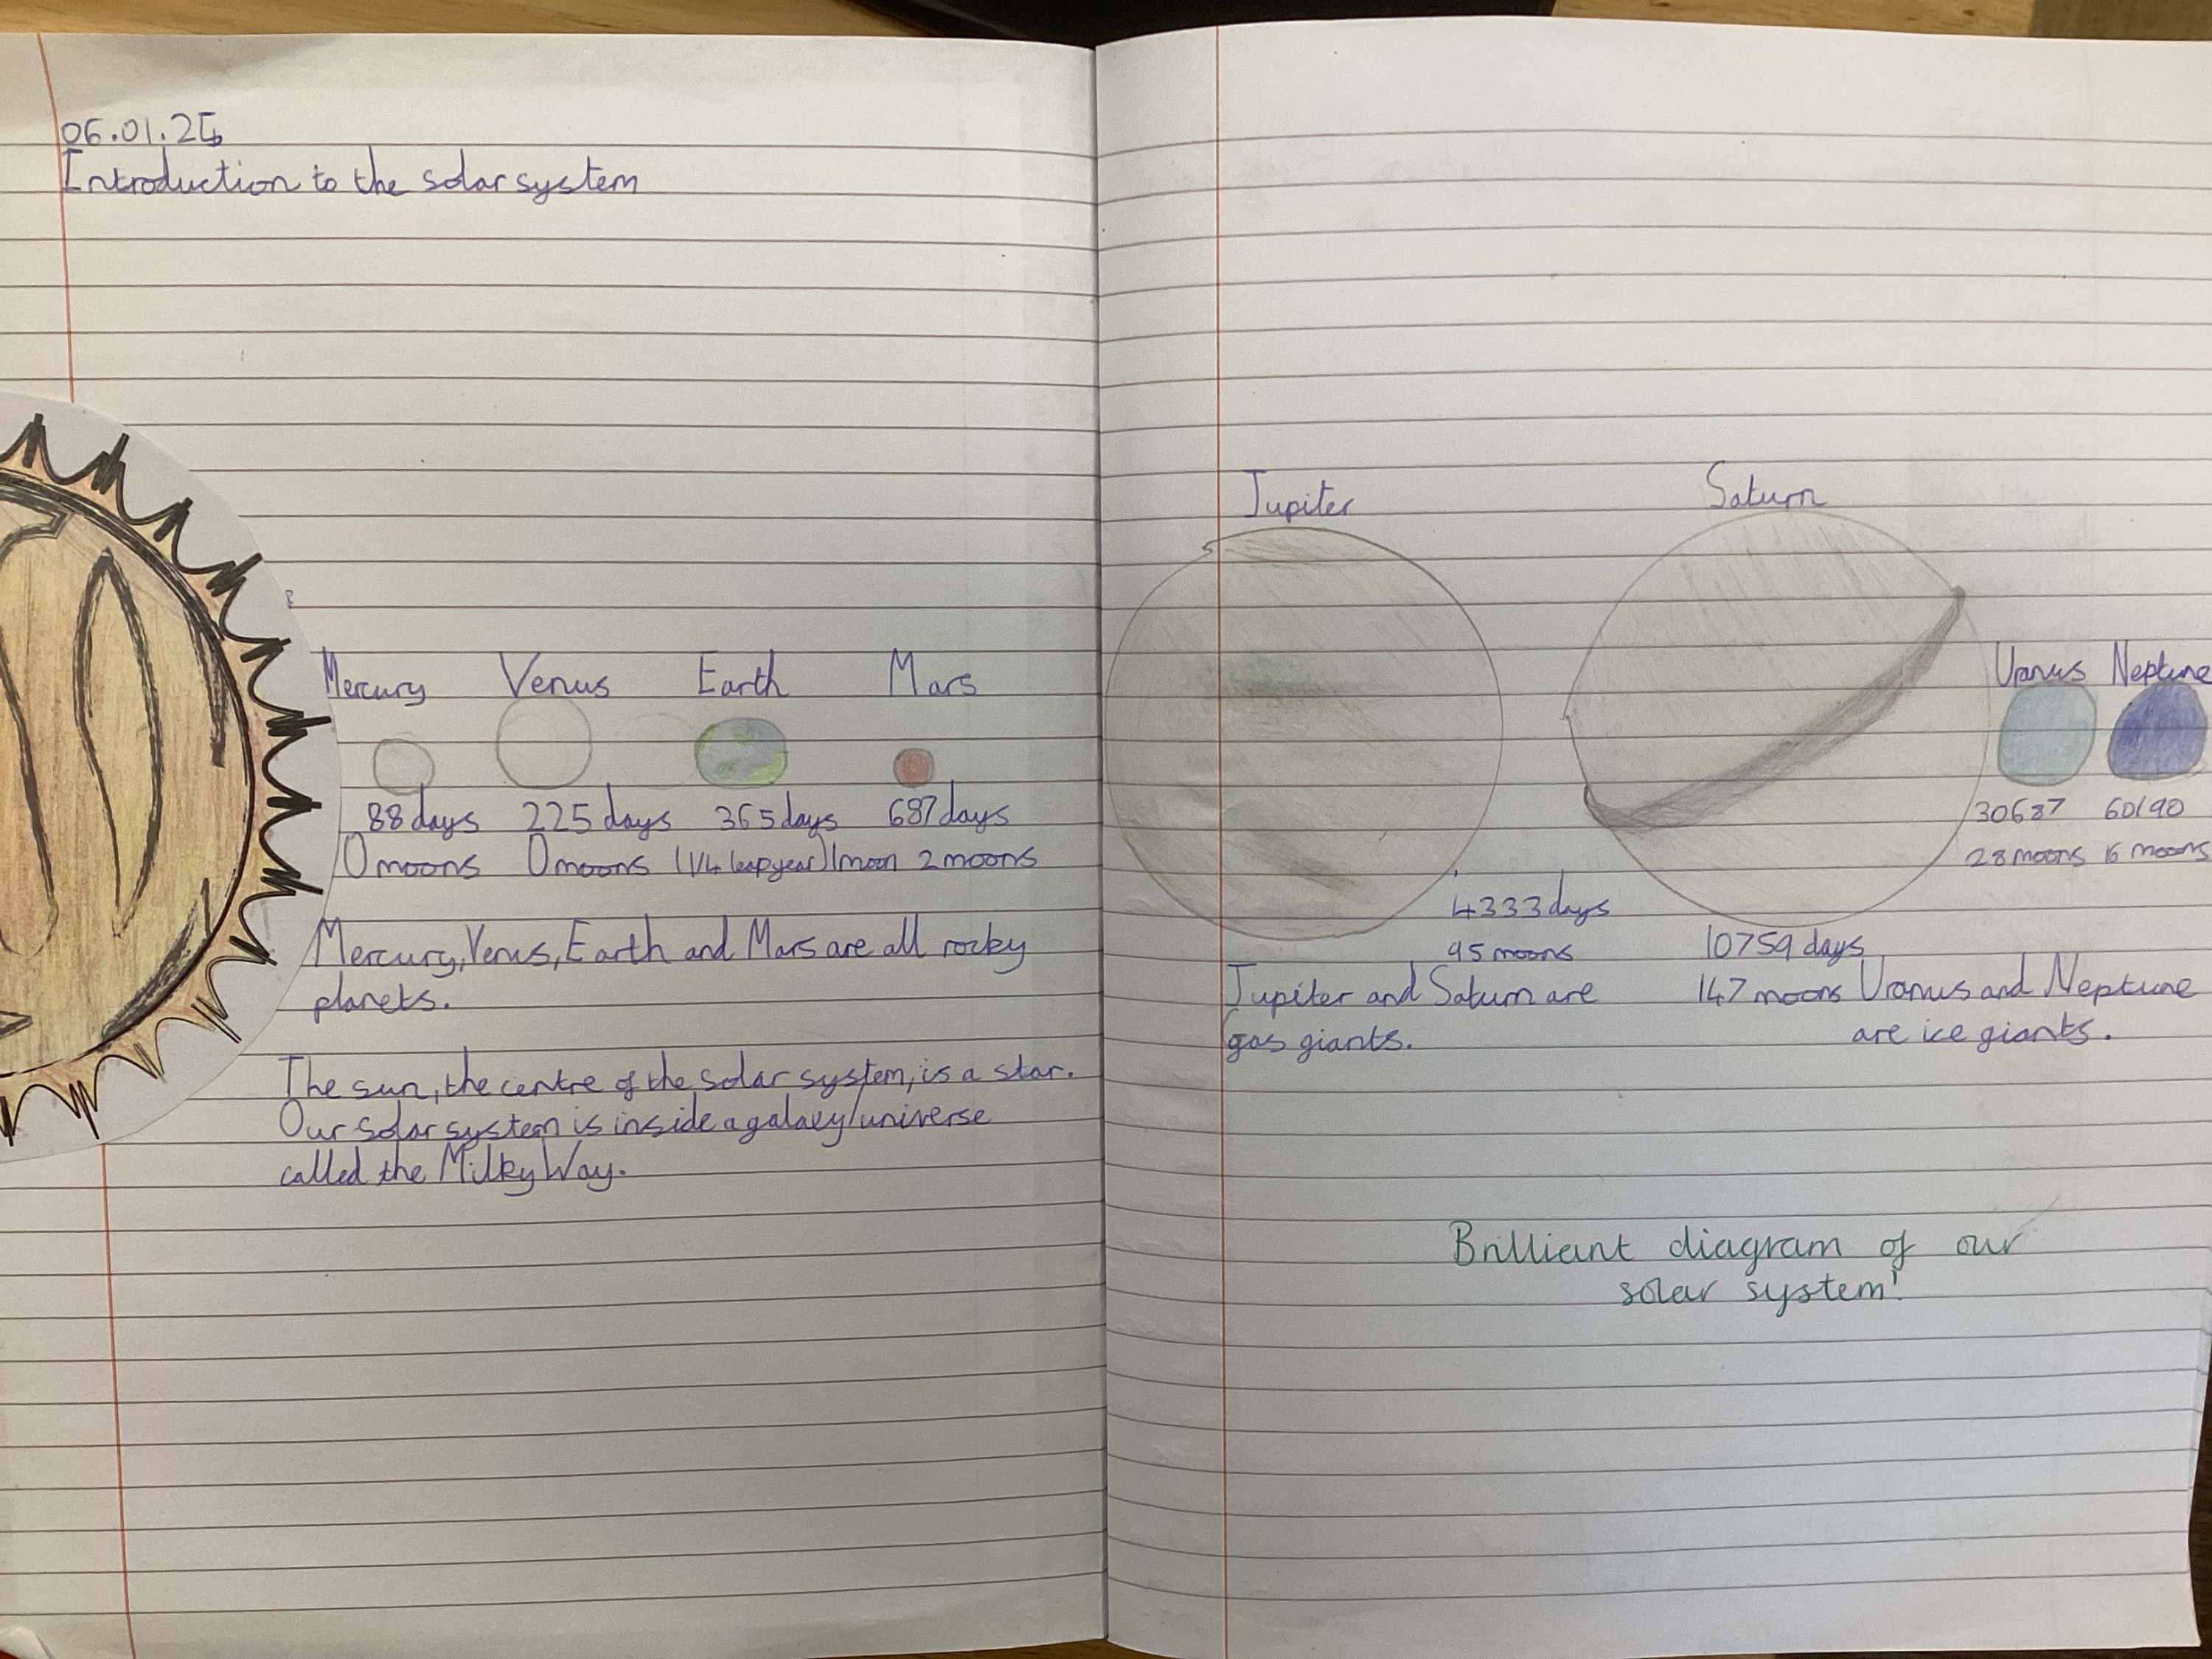 06.01.25
Introduction to the solar system
Mercury Venus Earth Mars
88 days 225 days 365 days 687 days
0 moons 0 moons (1/4 leap year) 1 moon 2 moons
Mercury, Venus, Earth and Mars are all rocky
planets.
The sun, the centre of the solar system, is a star.
Our solar system is inside a galaxy/universe
called the Milky Way.
Jupiter Saturn
Uranus Neptune
30687 60190
28 moons 16 moons
4333 days
95 moons
10759 days
147 moons
Jupiter and Saturn are
gas giants.
Uranus and Neptune
are ice giants.
Brilliant diagram of our
solar system!